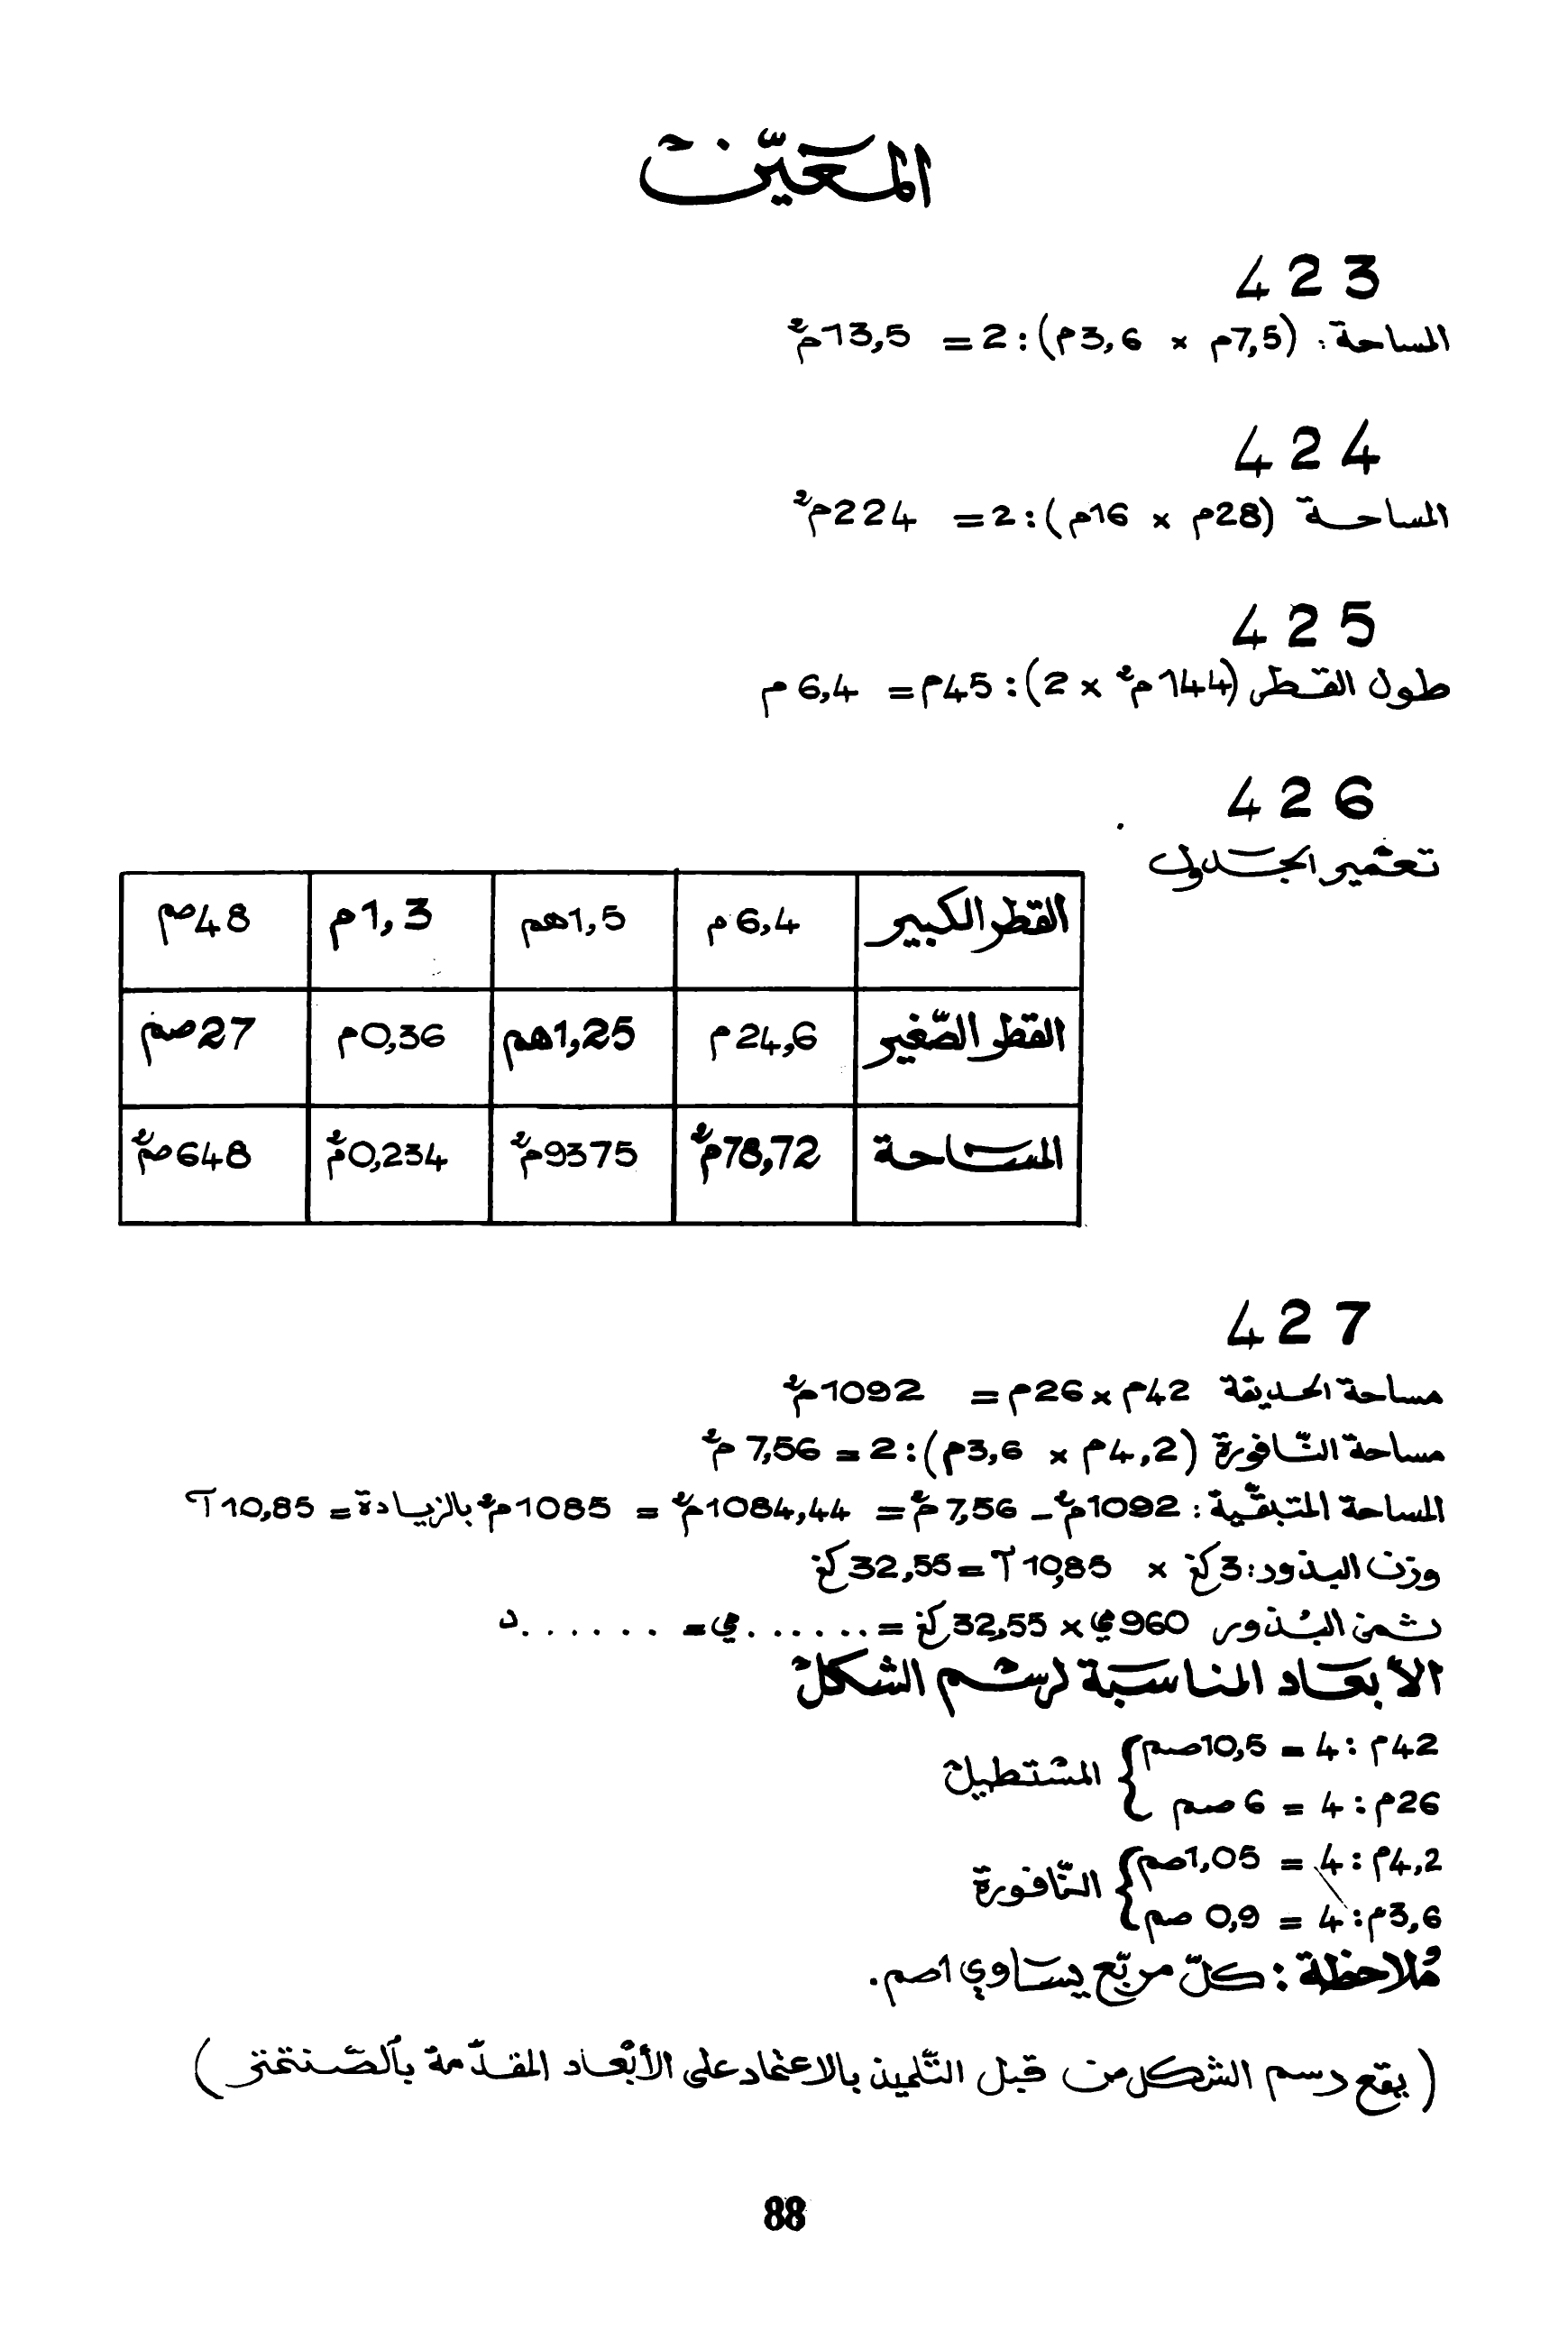 المعيّن
423
المساحة: (7,5م × 3,6م):2 = 13,5م²
424
المساحة (28م × 16م):2 = 224م²
425
طول القطر (144م² × 2):45م = 6,4 م
426
تعمير الجدول
القطر الكبير 6,4 م 1,5هم 1,3م 48صم
القطر الصّغير 24,6 م 1,25هم 0,36م 27صم
المساحة 78,72م² 9375م² 0,234م² 648صم²
427
مساحة الحديقة 42م × 26م = 1092م²
مساحة النّافورة (4,2م × 3,6م):2 = 7,56 م²
المساحة المتبقّية: 1092م² – 7,56م² = 1084,44م² = 1085م² بالزيادة = 10,85آ
وزن البذور: 3كغ × 10,85آ = 32,55كغ
ثمن البُذور 960مي × 32,55كغ = .......مي = .......د
الأبعاد المناسبة لرسم الشكل
42م :4 = 10,5صم
26م :4 = 6 صم
المستطيل
4,2م :4 = 1,05صم
3,6م :4 = 0,9 صم
النّافورة
مُلاحظة: كلّ مربّع يساوي 1صم.
(يقع رسم الشكل من قبل التّلميذ بالاعتماد على الأبْعاد المقدّمة بالصّنتمتر)
88